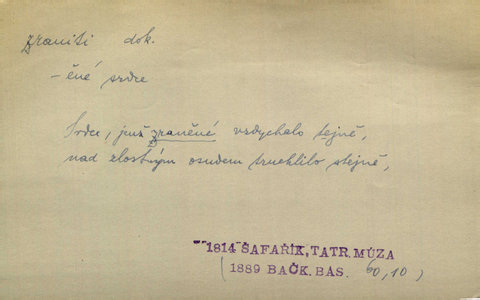 zraniti dok.
-ěné srdce
Srdce, jenž zraněné vzdychalo tejně,
nad zlostným osudem truchlilo stejně,
1814 ŠAFAŘÍK, TATR. MÚZA
(1889 BAČK. BAS. 60,10)